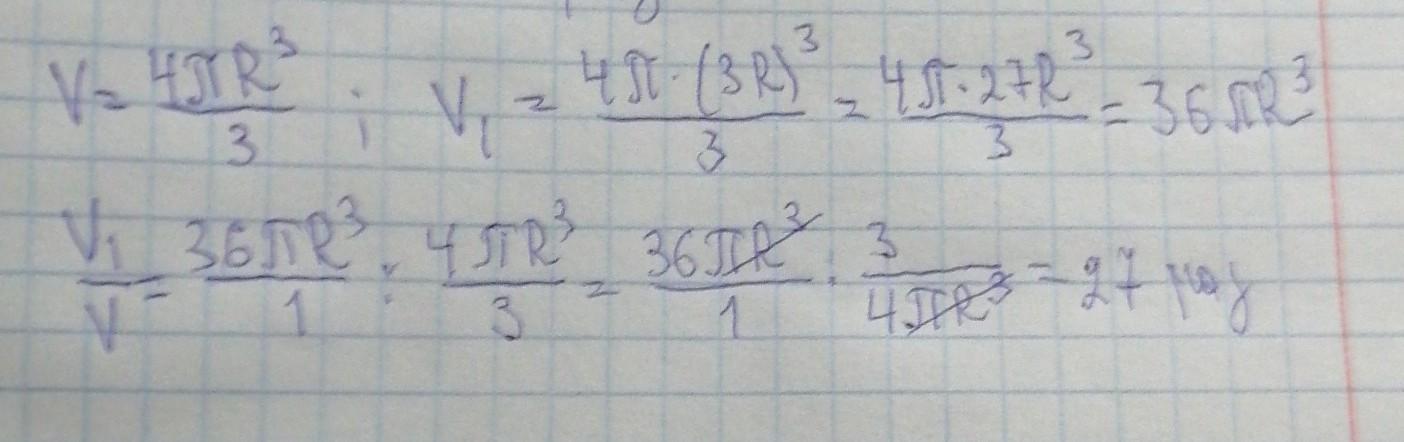 V = 4πR³/3 ; V₁ = 4π·(3R)³/3 = 4π·27R³/3 = 36πR³
V₁/V = 36πR³/1 : 4πR³/3 = 36πR³/1 · 3/4πR³ = 27 раз